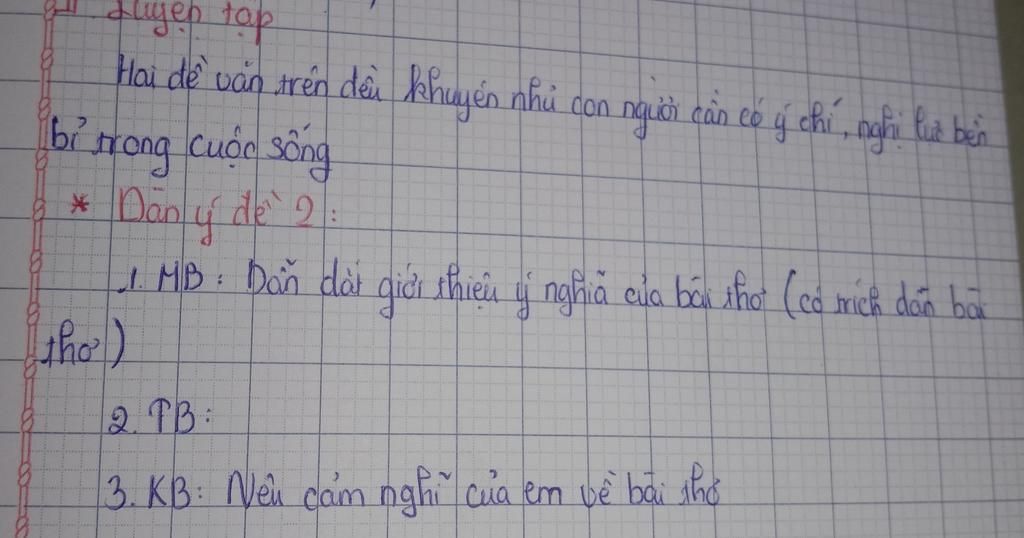 Luyện tập
Hai đề văn trên đều khuyên nhủ con người cần có ý chí, nghị lực bền
bỉ trong cuộc sống
* Dàn ý đề 2:
1. MB: Dẫn dắt giới thiệu ý nghĩa của bài thơ (có trích dẫn bài
thơ)
2. TB:
3. KB: Nêu cảm nghĩ của em về bài thơ